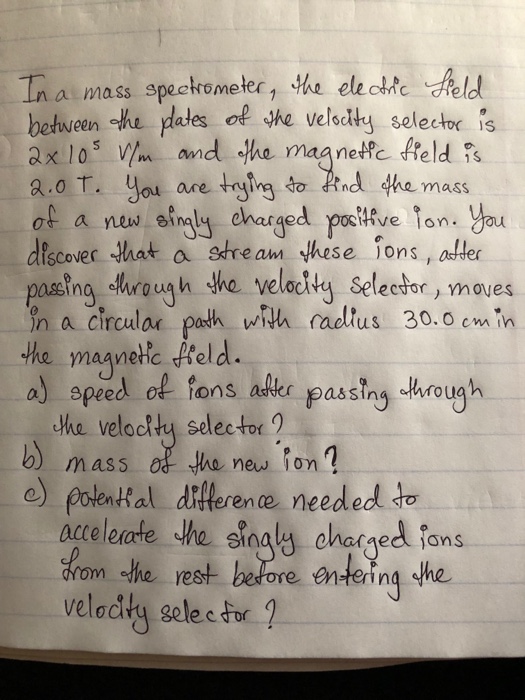 In a mass spectrometer, the electric field
between the plates of the velocity selector is
2x10⁵ V/m and the magnetic field is
2.0 T. You are trying to find the mass
of a new singly charged positive ion. You
discover that a stream these ions, after
passing through the velocity selector, moves
in a circular path with radius 30.0 cm in
the magnetic field.
a) speed of ions after passing through
the velocity selector?
b) mass of the new ion?
c) potential difference needed to
accelerate the singly charged ions
from the rest before entering the
velocity selector?